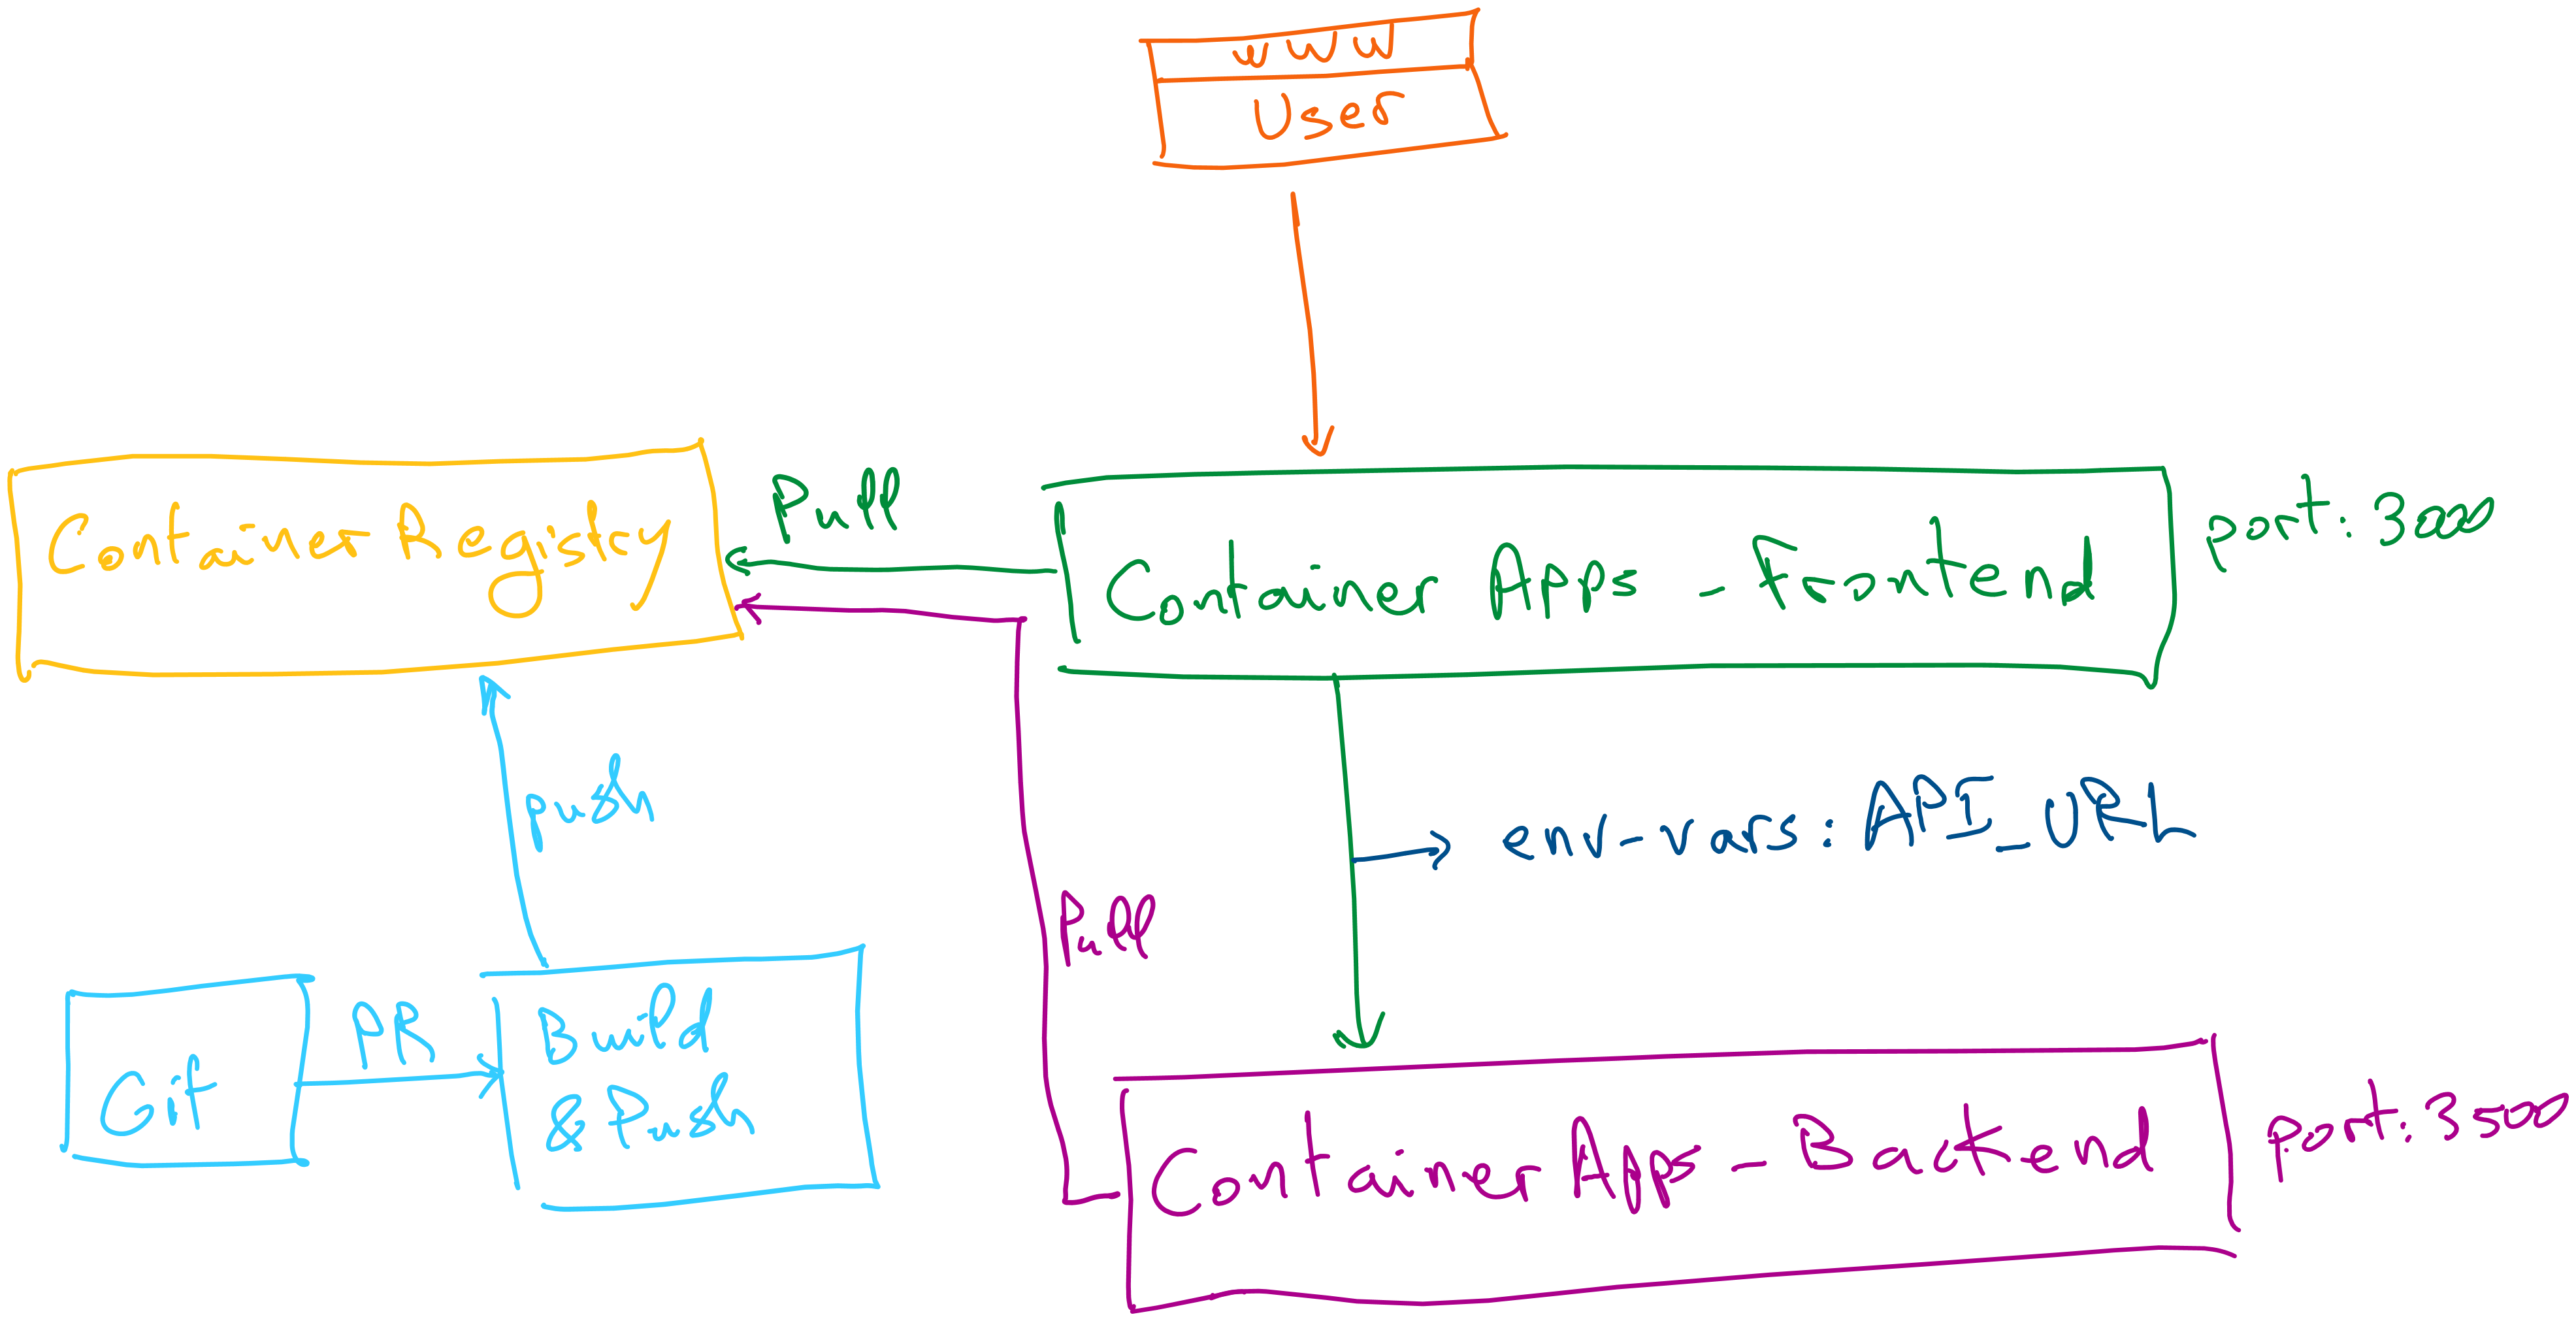 www
User
Container Registry
Pull
Container Apps - Frontend
port: 3000
push
env-vars: API_URL
Pull
Git
PR
Build
& Push
Container Apps - Backend
port: 3500